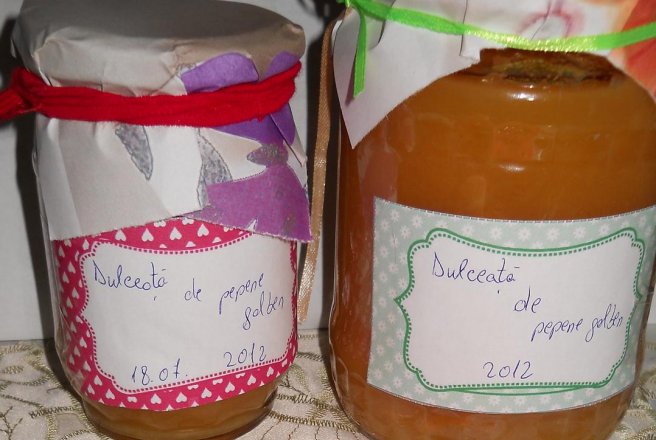 Dulceață
de pepene
galben
18.07. 2012
Dulceață
de
pepene galben
2012